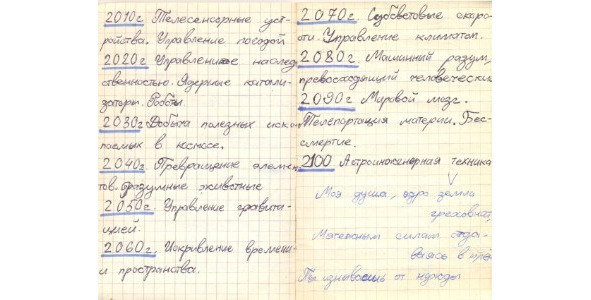 2010г. Телесенсорные уст-
ройства. Управление погодой
2020г Управление наслед
ственностью. Ядерные катали-
заторы. Роботы.
2030г Добыча полезных ископ
паемых в космосе.
2040г. Превращение элемен
тов. разумные животные
2050г. Управление гравита-
цией.
2060г. Искривление времени
и пространства.
2070г. Субсветовые скоро-
сти. Управление климатом.
2080г. Машинный разум,
превосходящий человеческий
2090г Мировой мозг.
Телепортация материи. Бес-
смертие.
2100 Астроинженерная техника
V
Моя душа, ядро земли
греховной
Мятежным силам отда-
ваясь в
Ты изнываешь от нужды